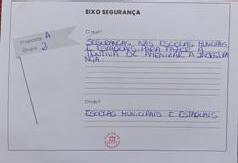 EIXO SEGURANÇA
Proposta A
Grupo 2
O quê?
SEGURANÇAS NAS ESCOLAS MUNICIPAIS
E ESTADUAIS PARA FAZER A
TENTIVA DE AMENIZAR A INSEGURA
NÇA
Onde?
ESCOLAS MUNICIPAIS E ESTADUAIS